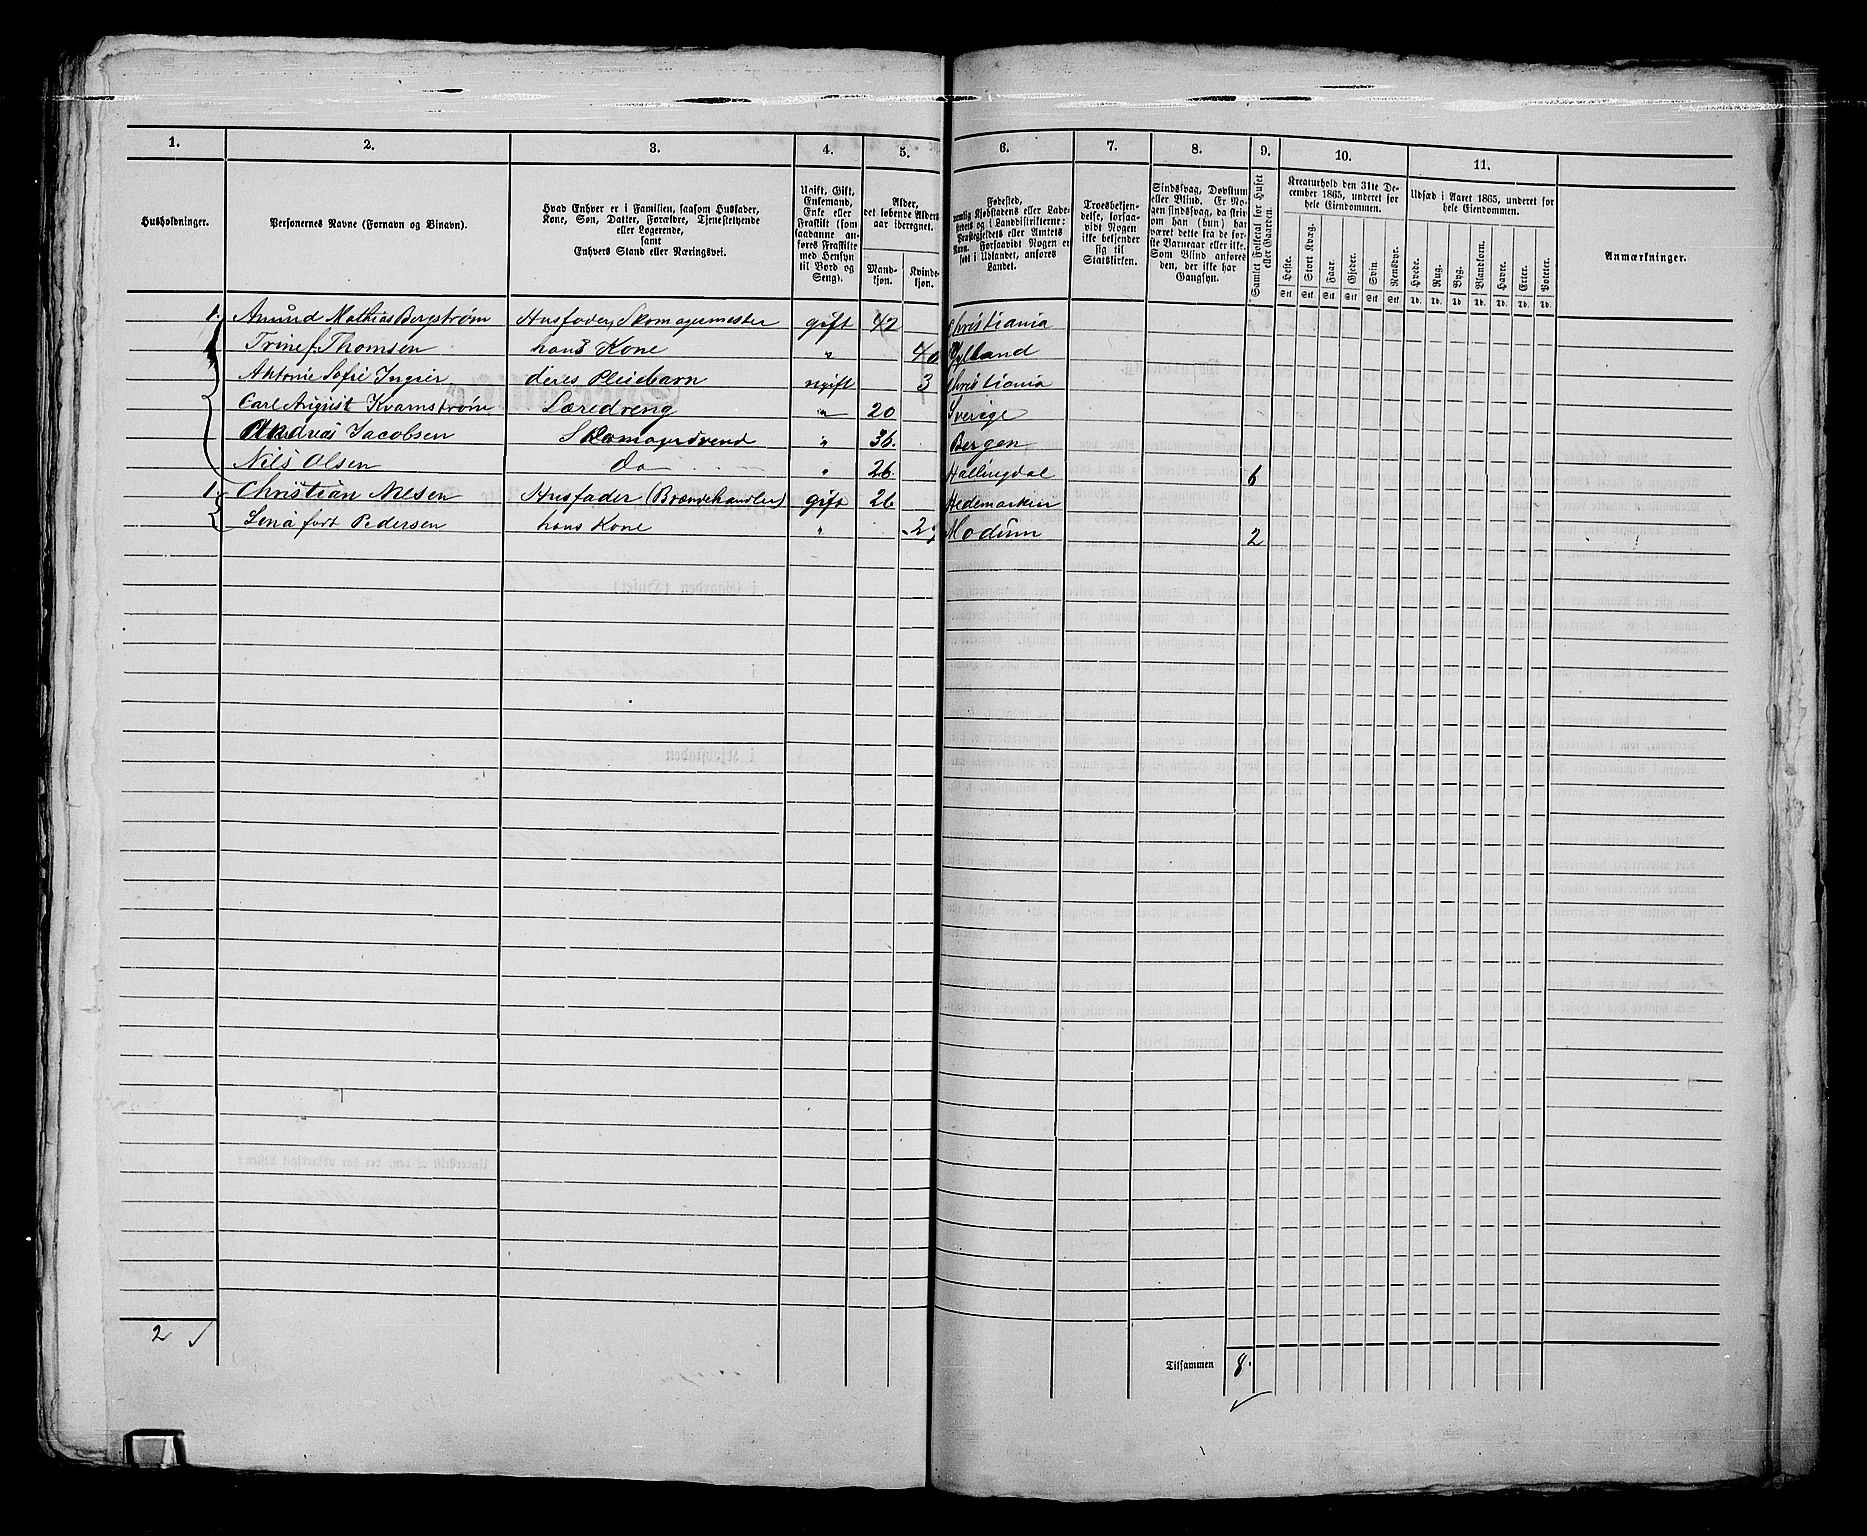 1. 2. 3. 4. 5. 6. 7. 8. 9. 10. 11.
Husholdninger.
Personernes Navne (Fornavn og Binavn).
Hvad Enhver er i Familien, saasom Husfader,
Kone, Søn, Datter, Forældre, Tjenestetyende
eller Logerende,
samt
Enhvers Stand eller Næringsvei.
Ugift, Gift,
Enkemand,
Enke eller
Fraskilt (som
saadanne an-
føres Fraskilte
med Hensyn
til Bord og
Seng).
Alder,
det løbende Alders-
aar iberegnet.
Mand-
kjøn.
Kvinde-
kjøn.
Fødested,
nemlig Kjøbstadens eller Lade-
stedets og i Landdistrikterne:
Præstegjeldets eller Amtets
Navn. Forsaavidt Nogen er
født i Udlandet, anføres
Landet.
Troesbekjen-
delse, forsaa-
vidt Nogen
ikke bekjender
sig til
Statskirken.
Sindssvag, Døvstum
eller Blind. Er No-
gen sindssvag, da skriv
om han (hun) har
været dette fra de før-
ste Barneaar eller ikke.
Som Blind anføres
den, der ikke har
Gangsyn.
Samlet Folketal for Huset
eller Gaarden.
Kreaturhold den 31te De-
cember 1865, underet for
hele Eiendommen.
Heste. Stort Kvæg. Faar. Gjeder. Svin. Rensdyr.
Stk. Stk. Stk. Stk. Stk. Stk.
Udsæd i Aaret 1865, underet for
hele Eiendommen.
Hvede. Rug. Byg. Blandkorn. Havre. Erter. Poteter.
Td. Td. Td. Td. Td. Td. Td.
Anmærkninger.
1. Amund Mathias Bergstrøm Husfader, Skomagermester gift 42 Christiania
Trine f. Thomsen hans Kone " 40 Jylland
Antonie Sofie deres Pleiebarn ugift 3 Christiania
Carl August Kvarnstrøm Læredreng " 20 Sverige
Andreas Jacobsen Skomagersvend " 36. Bergen
Nils Olsen do " 26. Hallingdal 6
1. Christian Nilsen Husfader (Brændehandler) gift 26 Hedemarken
Lina født Pedersen hans Kone " 27 Modum 2
2
Tilsammen 8.